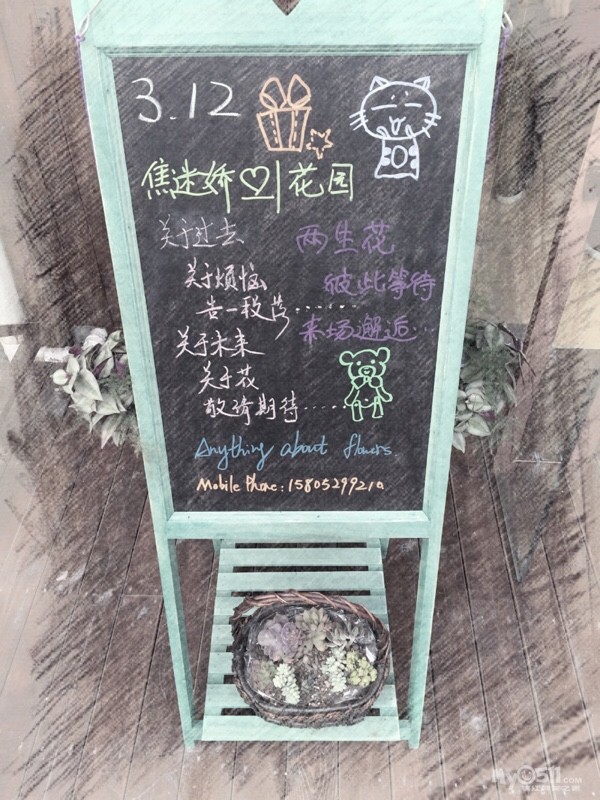 3.12
焦迷娇♡|花园
关于过去
关于烦恼
告一段落......
关于未来
关于花
敬请期待......
两生花
彼此等待
来场邂逅...
Anything about flowers.
Mobile Phone: 15805299210